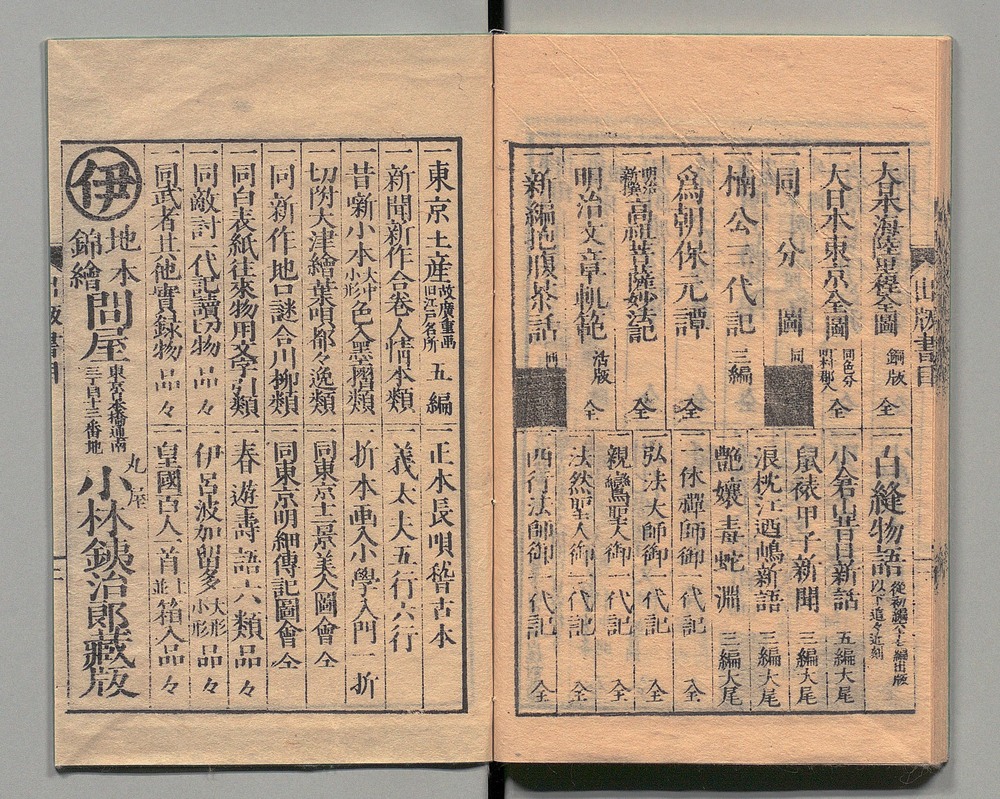 一大日本海陸里程全圖 銅版 全
一大日本東京全圖 同色分 全
一同分圖 同
一楠公三代記 三編
一為朝保元譚 全
一明治新撰高祖菩薩妙法記 全
一明治文章軌範 活版 全
一新編抱腹茶話
一白縫物語
一小倉山昔日新話 五編大尾
一鼠裱甲子新聞 三編大尾
一浪枕江迺嶋新語 三編大尾
一艶孃毒蛇淵 三編大尾
一一休禪師御一代記 全
一弘法大師御一代記 全
一親鸞聖人御一代記 全
一法然聖人御一代記 全
一西行法師御一代記 全
出版書目
一東京土産 故廣重画 旧江戸名所 五編
一新聞新作合卷人情本類
一昔噺小本 大中小形 色入墨摺類
一切附大津繪葉唄都々逸類
一同新作地口謎合川柳類
一同白表紙往來物用文字引類
一同敵討一代記讀切物品々
一同武者其他實録物品々
一正本長唄稽古本
一義太夫五行六行
一折本画入小學入門一折
一同東京十二景美人圖會 全
一同東京明細傳記圖會 全
一春遊壽語六類品々
一伊呂波加留多 大形小形 品々
一皇國百人一首 並箱入品々
伊
地本
錦繪
問屋
東京日本橋通南
三丁目十三番地
丸屋
小林鉄治郎藏版